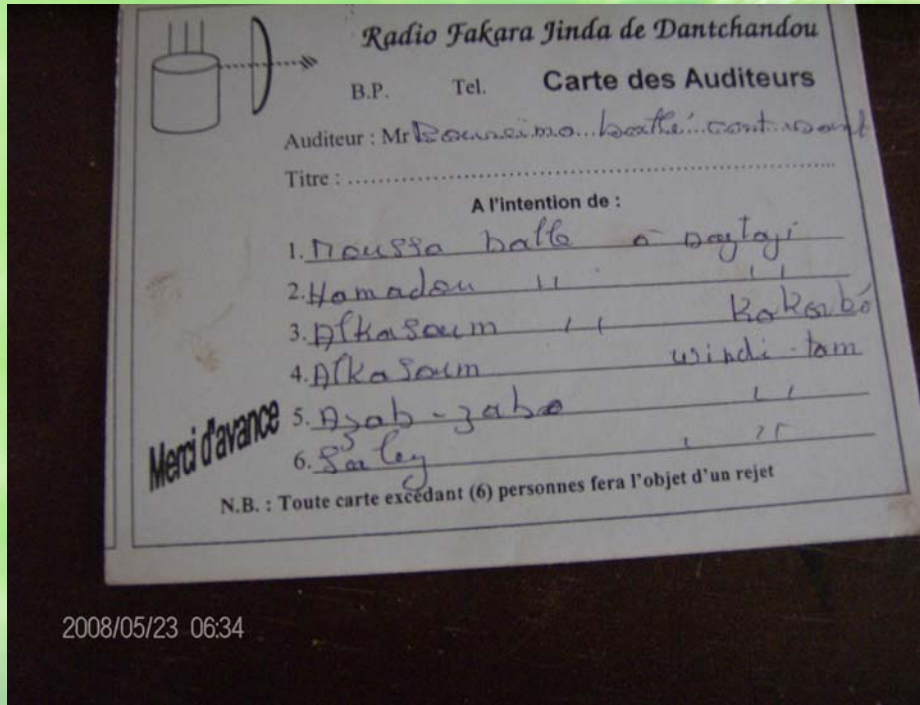 Radio Fakara Jinda de Dantchandou
B.P. Tel. Carte des Auditeurs
Auditeur : Mr
Titre : ......................................................
A l'intention de :
1. Moussa balle a
2. Hamadou " "
3. Alkasoum " Kokorbé
4. Alkasoum windi-tam
5. Azab-zabo "
6. Saley " "
Merci d'avance
N.B. : Toute carte excédant (6) personnes fera l'objet d'un rejet
2008/05/23 06:34